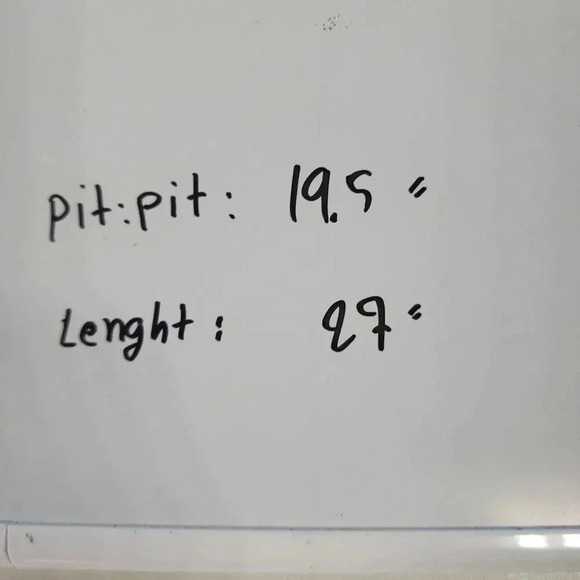 pit:pit: 19.5 "
Lenght: 27 "